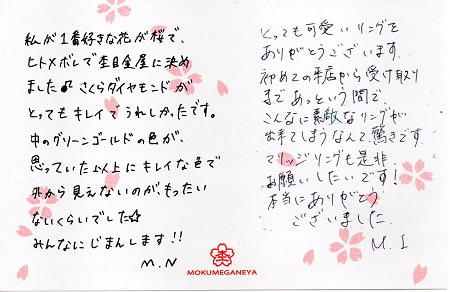 私が1番好きな花が桜で、
ヒトメボレで杢目金屋に決め
ました♪ さくらダイヤモンドが
とってもキレイでうれしかったです。
中のグリーンゴールドの色が、
思っていた以上にキレイな色で
外から見えないのがもったい
ないくらいでした☆
みんなにじまんします!!
M.N
とっても可愛いリングを
ありがとうございます。
初めての来店から受け取り
まであっという間で、
こんなに素敵なリングが
出来てしまうなんて、驚きです
マリッジリングも是非
お願いしたいです!
本当にありがとう
ございました
M.I
MOKUMEGANEYA